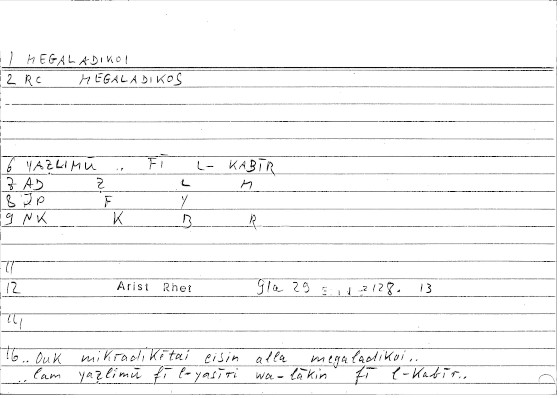 1 MEGALADIKOI
2 RC MEGALADIKOS
6 YAẒLIMŪ .. FĪ L- KABĪR
7 AD Ẓ L M
8 JP F Y
9 NK K B R
11
12 Arist Rhet Gla 29 128. 13
14
16 .. Ouk mikradikētai eisin alla megaladikoi..
.. lam yaẓlimū fī l-yasīri wa-lākin fī l-Kabīr..